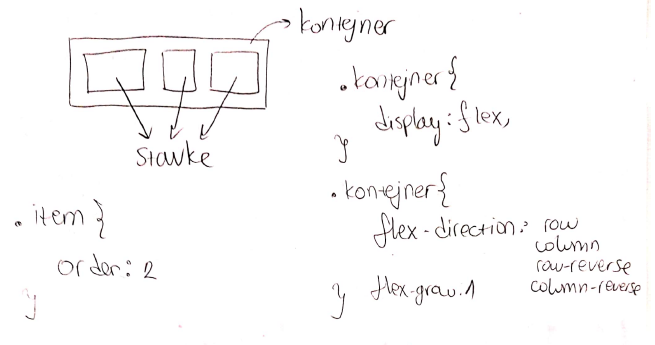 kontejner
stavke
.kontejner{
display: flex,
}
.item {
order: 2
}
.kontejner{
flex-direction: row
column
row-reverse
column-reverse
} flex-grow.1